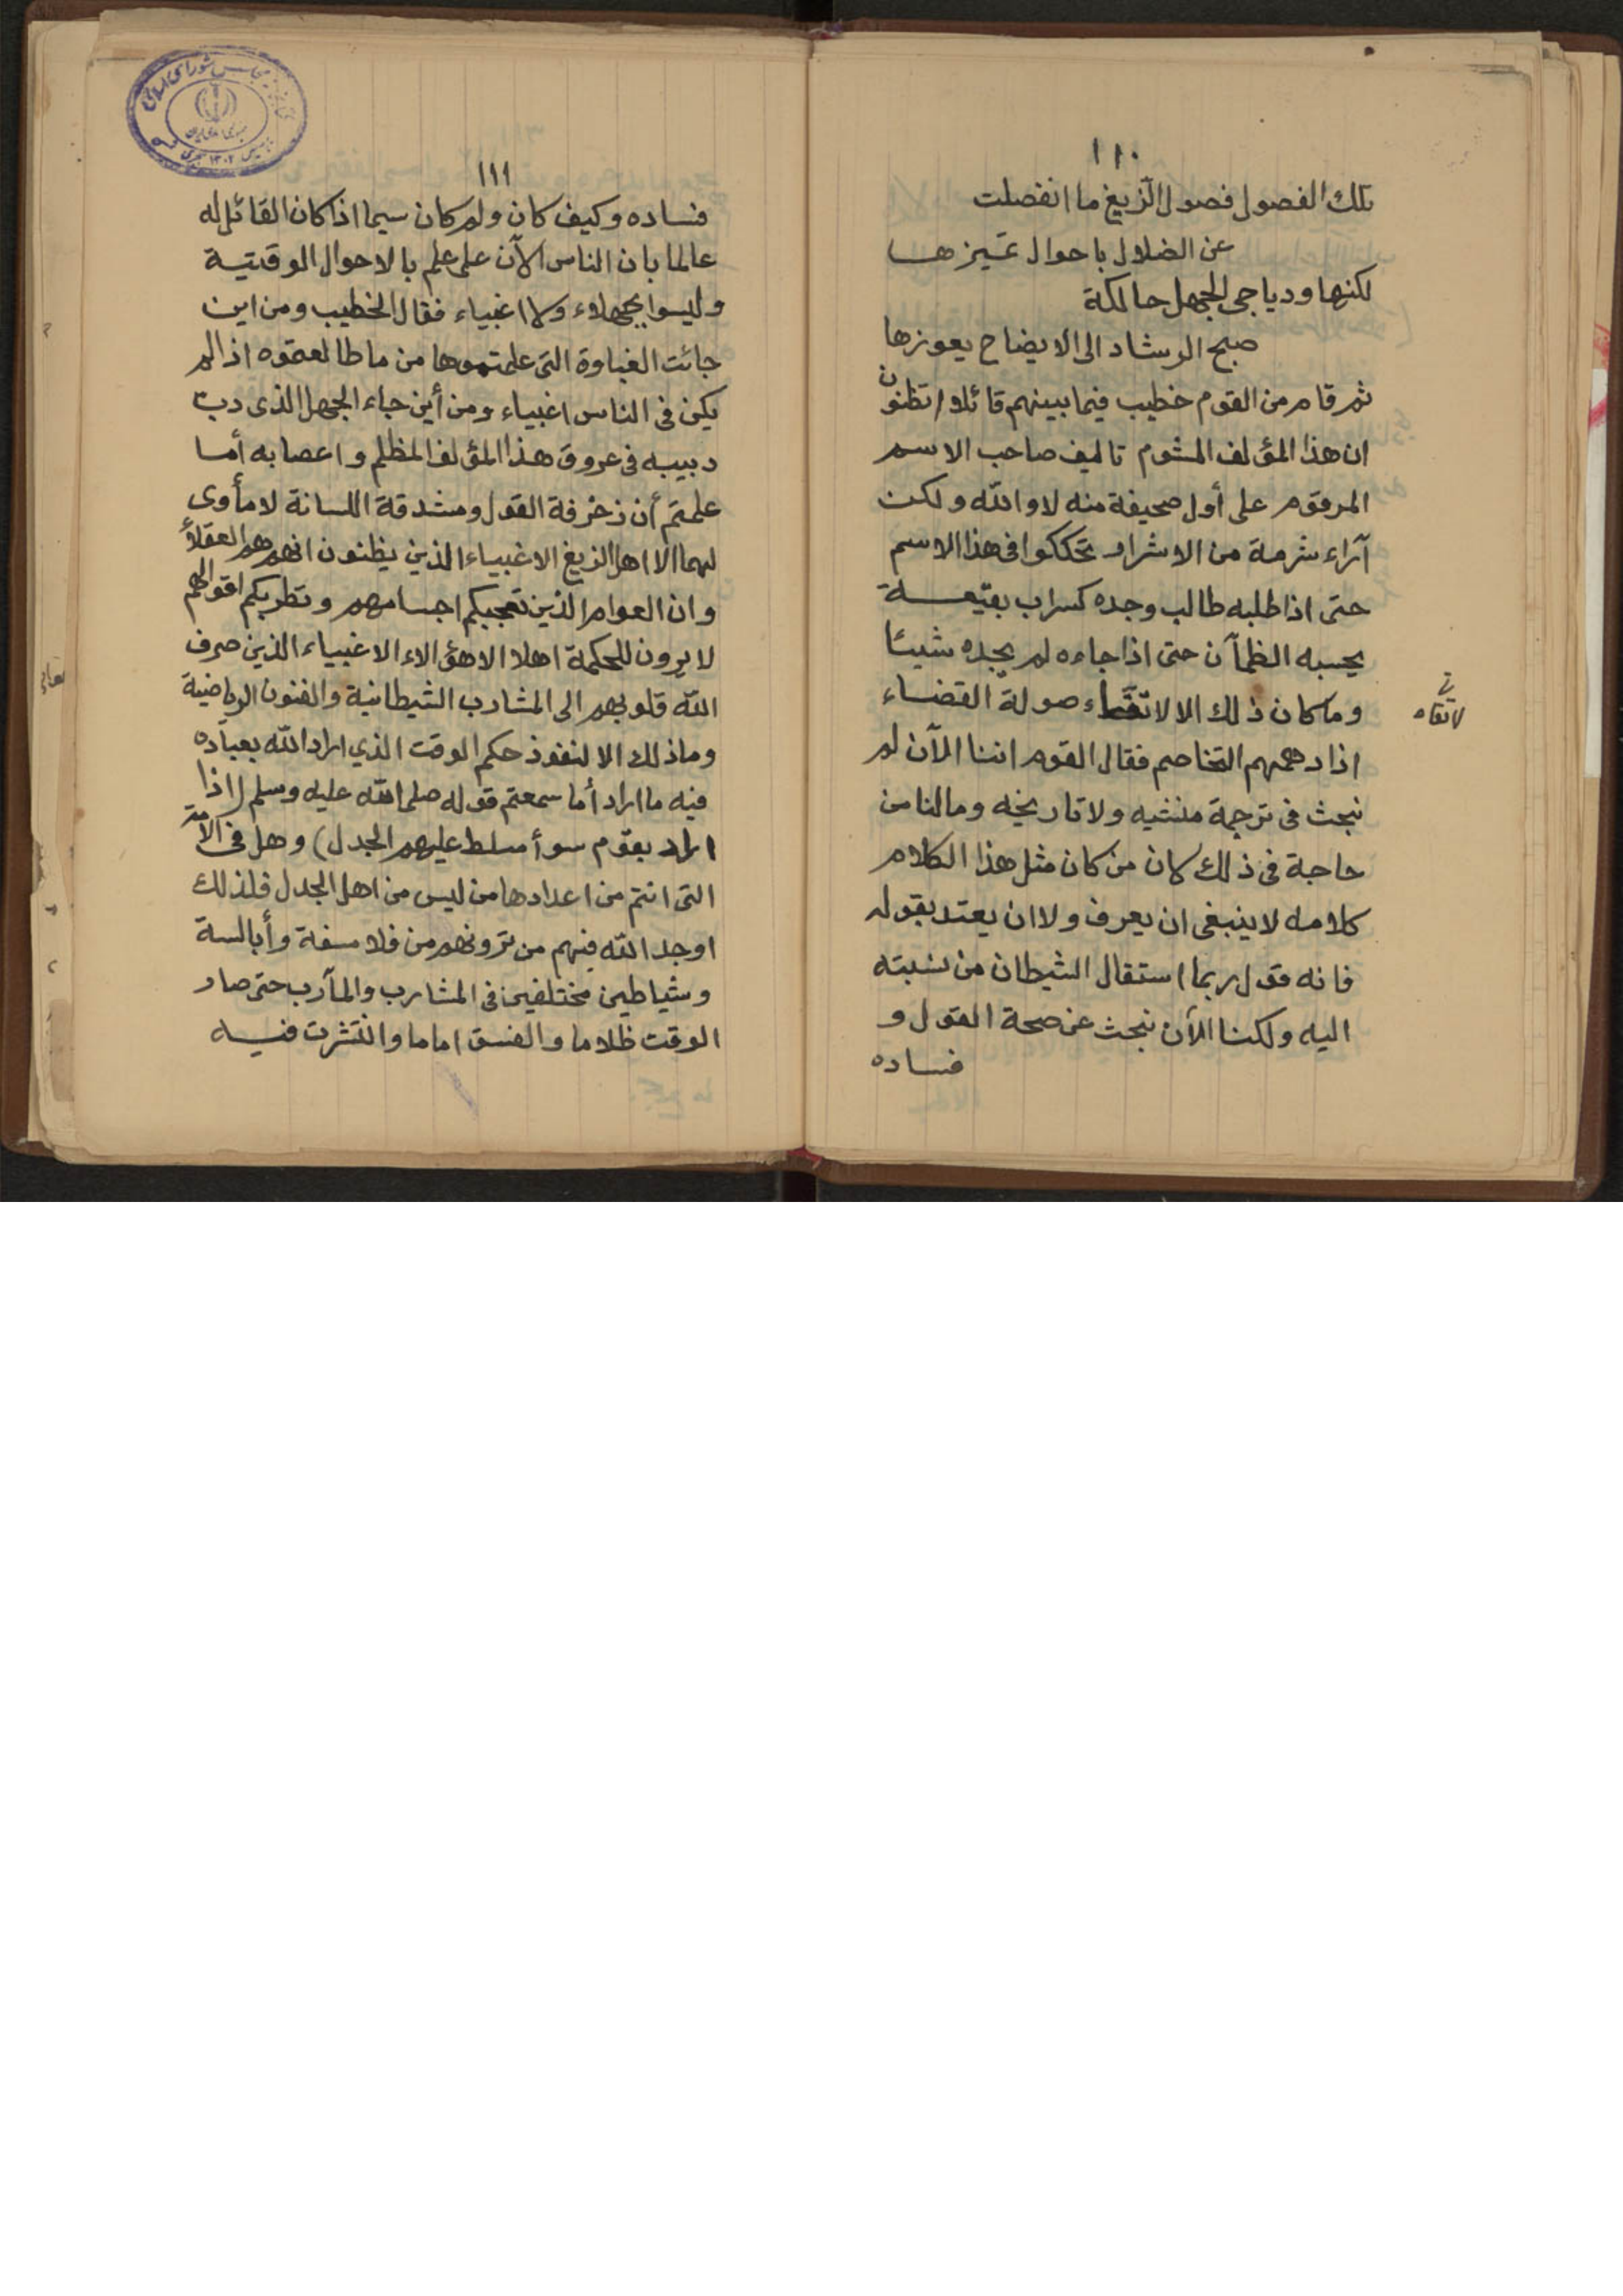 ١١٠
تلك الفصول فصول الزيغ ما انفصلت
عن الضلال باحوال تميزها
لكنها ودياجى الجهل حالكة
صبح الرشاد الى الايضاح يعوزها
ثم قام من القوم خطيب فيما بينهم قائلا اتظنون
ان هذا المؤلف المشوم تاليف صاحب الاسم
المرقوم على أول صحيفة منه لا والله ولكن
آراء شرمة من الاشرار تحككوا فى هذا الاسم
حتى اذا طلبه طالب وجده كسراب بقيعة
يحسبه الظمآن حتى اذا جاءه لم يجده شيئا
وما كان ذلك الا لاتقاء صولة القضاء
لاتقاء
اذا دهمهم التخاصم فقال القوم اننا الآن لم
نبحث فى ترجمة منشيه ولا تاريخه وما لنا من
حاجة فى ذلك كان من كان مثل هذا الكلام
كلامه لا ينبغى ان يعرف ولا ان يعتد بقوله
فانه قول ربما استقال الشيطان من نسبته
اليه ولكنا الآن نبحث عن صحة القول و
فساده
١١١
فساده وكيف كان ولم كان سيما اذا كان القائل له
عالما بان الناس الآن على علم بالاحوال الوقتية
وليسوا بجهلاء ولا اغبياء فقال الخطيب ومن اين
جائت الغباوة التى علمتموها من ما طالعتموه اذا لم
يكن فى الناس اغبياء ومن أين جاء الجهل الذى دب
دبيبه فى عروق هذا المؤلف المظلم واعصابه أما
علمتم أن زخرفة القول ومشدقة اللسانة لا مأوى
لهما الا اهل الزيغ الاغبياء الذين يظنون انهم هم العقلاء
وان العوام الذين تعجبكم اجسامهم وتطربكم اقوالهم
لا يرون للحكمة اهلا الا هؤالاء الاغبياء الذين صرف
الله قلوبهم الى المشارب الشيطانية والفنون الرياضية
وما ذلك الا لنفوذ حكم الوقت الذي اراد الله بعباده
فيه ما اراد أما سمعتم قوله صلى الله عليه وسلم (اذا
اراد بقوم سوأ سلط عليهم الجدل) وهل فى الامة
التى انتم من اعدادها من ليس من اهل الجدل فلذلك
اوجد الله فيهم من ترونهم من فلاسفة وأبالسة
وشياطين مختلفين فى المشارب والمآرب حتى صار
الوقت ظلاما والفسق اماما وانتشرت فيه